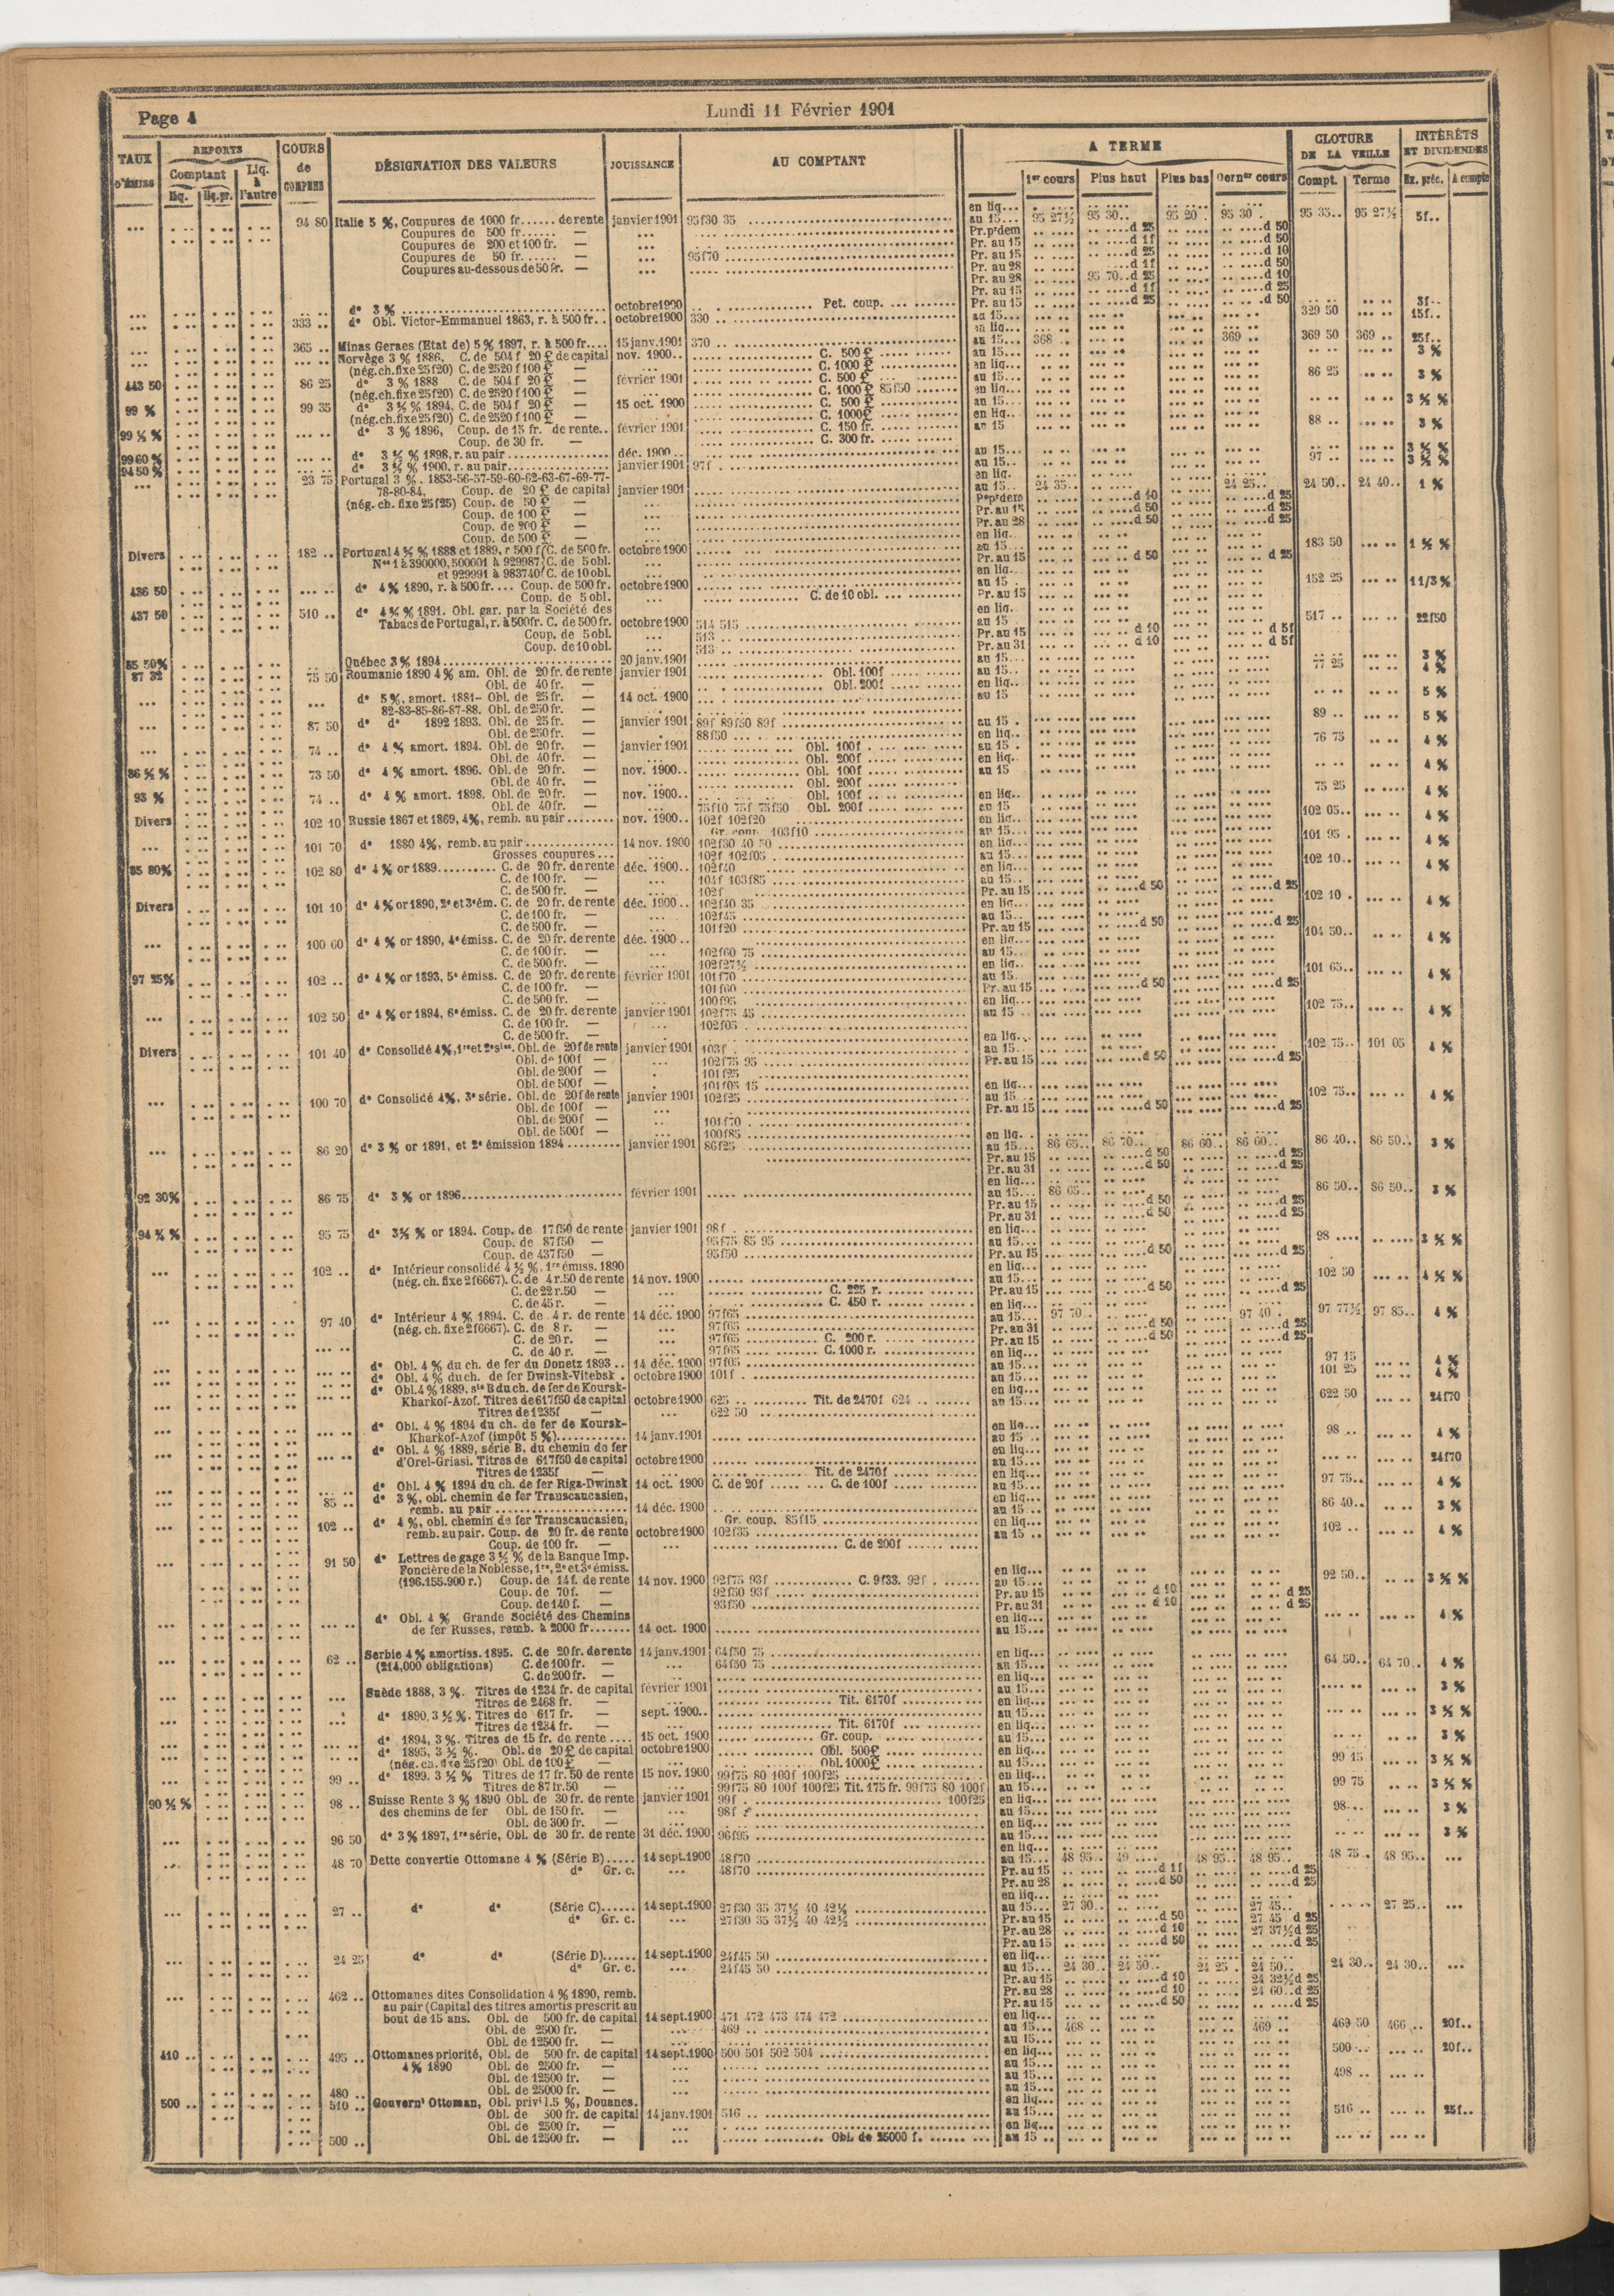 Page 4
Lundi 11 Février 1901
TAUX D'ÉMISS REPORTS Comptant Liq. Liq. pr. Liq. à l'autre COURS de COMPENS DÉSIGNATION DES VALEURS JOUISSANCE AU COMPTANT A TERME 1er cours Plus haut Plus bas Dern.er cours CLOTURE DE LA VEILLE Compt. Terme INTÉRÊTS ET DIVIDENDES Ex. préc. A compte
94 80 Italie 5 %, Coupures de 1000 fr...... de rente janvier 1901 95f30 35 au 15... 95 27½ 95 30.. 95 20 . 95 30 . 95 35.. 95 27½ 5f..
Coupures de 500 fr...... —
Coupures de 200 et 100 fr. —
Coupures de 50 fr...... — 95f70
Coupures au-dessous de 50 fr. —
d° 3 % octobre 1900 Pet. coup. 3f..
333 .. d° Obl. Victor-Emmanuel 1863, r. à 500 fr.. octobre 1900 330 .. 329 50 15f..
365 .. Minas Geraes (Etat de) 5 % 1897, r. à 500 fr.... 15 janv. 1901 370 .. au 15... 368 .. 369 .. 369 50 369 .. 25f..
Norvège 3 % 1886, C. de 504 f 20 £ de capital nov. 1900.. C. 500 £ 3 %
(nég. ch. fixe 25f20) C. de 2520 f 100 £ — C. 1000 £
443 50 86 25 d° 3 % 1888 C. de 504 f 20 £ — février 1901 C. 500 £ 86 25 3 %
(nég. ch. fixe 25f20) C. de 2520 f 100 £ — C. 1000 £ 85f50
99 % 99 35 d° 3 ½ % 1894, C. de 504 f 20 £ — 15 oct. 1900 C. 500 £ 3 ½ %
(nég. ch. fixe 25f20) C. de 2520 f 100 £ — C. 1000 £
99 ½ % d° 3 % 1896, Coup. de 15 fr. de rente.. février 1901 C. 150 fr. 88 .. 3 %
Coup. de 30 fr. — C. 300 fr.
99 60 % d° 3 ½ % 1898, r. au pair déc. 1900.. 3 ½ %
94 50 % d° 3 ½ % 1900, r. au pair janvier 1901 97f . 97 .. 3 ½ %
23 75 Portugal 3 %. 1853-56-57-59-60-62-63-67-69-77-
78-80-84. Coup. de 20 £ de capital janvier 1901 au 15.. 24 35.. 24 25.. 24 50.. 24 40.. 1 %
(nég. ch. fixe 25f25) Coup. de 50 £ —
Coup. de 100 £ —
Coup. de 200 £ —
Coup. de 500 £ —
Divers 182 .. Portugal 4 ½ % 1888 et 1889, r 500 f C. de 500 fr. octobre 1900 183 50 1 ½ %
Nos 1 à 390000, 500001 à 929987 C. de 5 obl.
et 929991 à 983740 C. de 10 obl.
436 50 d° 4 % 1890, r. à 500 fr.... Coup. de 500 fr. octobre 1900 152 25 1 1/3 %
Coup. de 5 obl. C. de 10 obl.
437 50 510 .. d° 4 ½ % 1891. Obl. gar. par la Société des
Tabacs de Portugal, r. à 500 fr. C. de 500 fr. octobre 1900 514 515 517 .. 22f50
Coup. de 5 obl. 513 ..
Coup. de 10 obl. 513 ..
85 50% Québec 3 % 1894 20 janv. 1901 3 %
87 32 75 50 Roumanie 1890 4 % am. Obl. de 20 fr. de rente janvier 1901 Obl. 100f 77 25 4 %
Obl. de 40 fr. — Obl. 200f
d° 5 %, amort. 1881- Obl. de 25 fr. — 14 oct. 1900 5 %
82-83-85-86-87-88. Obl. de 250 fr. —
87 50 d° d° 1892 1893. Obl. de 25 fr. — janvier 1901 89f 89f50 89f 89 .. 5 %
Obl. de 250 fr. — 88f50
74 .. d° 4 % amort. 1894. Obl. de 20 fr. — janvier 1901 Obl. 100f 76 75 4 %
Obl. de 40 fr. — Obl. 200f
86 ½ % 73 50 d° 4 % amort. 1896. Obl. de 20 fr. — nov. 1900.. Obl. 100f 4 %
Obl. de 40 fr. — Obl. 200f
93 % 74 .. d° 4 % amort. 1898. Obl. de 20 fr. — nov. 1900.. Obl. 100f 75 25 4 %
Obl. de 40 fr. — 75f10 75f 75f50 Obl. 200f
Divers 102 10 Russie 1867 et 1869, 4 %, remb. au pair nov. 1900.. 102f 102f20 102 05.. 4 %
Gr. coup. 103f10
101 70 d° 1880 4 %, remb. au pair 14 nov. 1900 102f30 40 50 101 95 . 4 %
Grosses coupures... 102f 102f05
85 80% 102 80 d° 4 % or 1889 C. de 20 fr. de rente déc. 1900.. 102f40 102 10.. 4 %
C. de 100 fr. — 104f 103f85
C. de 500 fr. — 102f
Divers 101 10 d° 4 % or 1890, 2e et 3e ém. C. de 20 fr. de rente déc. 1900.. 102f40 35 102 10 . 4 %
C. de 100 fr. — 102f45
C. de 500 fr. — 101f20
100 60 d° 4 % or 1890, 4e émiss. C. de 20 fr. de rente déc. 1900.. 104 50.. 4 %
C. de 100 fr. — 102f60 75
C. de 500 fr. — 102f27½
97 25% 102 .. d° 4 % or 1893, 5e émiss. C. de 20 fr. de rente février 1901 101f70 101 65.. 4 %
C. de 100 fr. — 101f60
C. de 500 fr. — 100f95
102 50 d° 4 % or 1894, 6e émiss. C. de 20 fr. de rente janvier 1901 102f75 45 102 75.. 4 %
C. de 100 fr. — 102f05
C. de 500 fr. —
Divers 101 40 d° Consolidé 4 %, 1re et 2e sies. Obl. de 20f de rente janvier 1901 103f 102 75.. 101 05 4 %
Obl. de 100f — 102f75 95
Obl. de 200f — 101f25
Obl. de 500f — 101f05 15
100 70 d° Consolidé 4 %, 3e série. Obl. de 20f de rente janvier 1901 102f25 102 75.. 4 %
Obl. de 100f —
Obl. de 200f — 101f70
Obl. de 500f — 100f85
86 20 d° 3 % or 1891, et 2e émission 1894 janvier 1901 86f25 au 15... 86 65.. 86 70.. 86 60.. 86 60.. 86 40.. 86 50.. 3 %
92 30% 86 75 d° 3 % or 1896 février 1901 au 15... 86 65.. 86 50.. 86 50.. 3 %
94 ¾ % 95 75 d° 3 ½ % or 1894. Coup. de 17f50 de rente janvier 1901 98f . 98 3 ½ %
Coup. de 87f50 — 95f75 85 95
Coup. de 437f50 — 95f50
102 .. d° Intérieur consolidé 4 ½ %, 1re émiss. 1890
(nég. ch. fixe 2f6667). C. de 4 r. 50 de rente 14 nov. 1900 102 50 4 ½ %
C. de 22 r. 50 — C. 225 r.
C. de 45 r. — C. 450 r.
97 40 d° Intérieur 4 % 1894. C. de 4 r. de rente 14 déc. 1900 97f65 au 15... 97 70.. 97 40 . 97 77½ 97 85.. 4 %
(nég. ch. fixe 2f6667). C. de 8 r. — 97f65
C. de 20 r. — 97f65 C. 200 r.
C. de 40 r. — 97f65 C. 1000 r.
d° Obl. 4 % du ch. de fer du Donetz 1893 .. 14 déc. 1900 97f05 97 15 4 %
d° Obl. 4 % du ch. de fer Dwinsk-Vitebsk . octobre 1900 101f . 101 25 4 %
d° Obl. 4 % 1889, sie B du ch. de fer de Koursk-
Kharkof-Azof. Titres de 617f50 de capital octobre 1900 625 .. Tit. de 2470f 624 622 50 24f70
Titres de 1235f — 622 50
d° Obl. 4 % 1894 du ch. de fer de Koursk-
Kharkof-Azof (impôt 5 %) 14 janv. 1901 98 .. 4 %
d° Obl. 4 % 1889, série B. du chemin de fer
d'Orel-Griasi. Titres de 617f50 de capital octobre 1900 24f70
Titres de 1235f — Tit. de 2470f
d° Obl. 4 % 1894 du ch. de fer Riga-Dwinsk 14 oct. 1900 C. de 20f C. de 100f 97 75.. 4 %
85 .. d° 3 %, obl. chemin de fer Transcaucasien,
remb. au pair 14 déc. 1900 86 40.. 3 %
102 .. d° 4 %, obl. chemin de fer Transcaucasien, Gr. coup. 85f15
remb. au pair. Coup. de 20 fr. de rente octobre 1900 102f35 102 .. 4 %
Coup. de 100 fr. — C. de 200f
91 50 d° Lettres de gage 3 ½ % de la Banque Imp.
Foncière de la Noblesse, 1re, 2e et 3e émiss.
(196.155.900 r.) Coup. de 14 f. de rente 14 nov. 1900 92f75 93f C. 9f33. 92f 92 50.. 3 ½ %
Coup. de 70 f. — 92f50 93f
Coup. de 140 f. — 93f50
d° Obl. 4 % Grande Société des Chemins
de fer Russes, remb. à 2000 fr 14 oct. 1900 4 %
62 .. Serbie 4 % amortiss. 1895. C. de 20 fr. de rente 14 janv. 1901 64f50 75 64 50.. 64 70.. 4 %
(214,000 obligations) C. de 100 fr. — 64f50 75
C. de 200 fr. —
Suède 1888, 3 %. Titres de 1234 fr. de capital février 1901 3 %
Titres de 2468 fr. — Tit. 6170f
d° 1890, 3 ½ %. Titres de 617 fr. — sept. 1900.. 3 ½ %
Titres de 1234 fr. — Tit. 6170f
d° 1894, 3 %. Titres de 15 fr. de rente 15 oct. 1900 Gr. coup. 3 %
d° 1895, 3 ½ %. Obl. de 20 £ de capital octobre 1900 Obl. 500 £ 99 15 3 ½ %
(nég. ch. fixe 25f20) Obl. de 100 £ — Obl. 1000 £
99 .. d° 1899. 3 ½ % Titres de 17 fr. 50 de rente 15 nov. 1900 99f75 80 100f 100f25 99 75 3 ½ %
Titres de 87 fr. 50 — 99f75 80 100f 100f25 Tit. 175 fr. 99f75 80 100f
90 ½ % 98 .. Suisse Rente 3 % 1890 Obl. de 30 fr. de rente janvier 1901 99f . 100f25 98 3 %
des chemins de fer Obl. de 150 fr. — 98f
Obl. de 300 fr. —
96 50 d° 3 % 1897, 1re série, Obl. de 30 fr. de rente 31 déc. 1900 96f95 3 %
48 70 Dette convertie Ottomane 4 % (Série B) 14 sept. 1900 48f70 au 15... 48 95.. 49 48 95.. 48 95.. 48 75 . 48 95..
d° Gr. c. 48f70
27 .. d° d° (Série C) 14 sept. 1900 27f30 35 37½ 40 42½ au 15... 27 30.. 27 45.. 27 25..
d° Gr. c. 27f30 35 37½ 40 42½ Pr. au 15 27 45 d 25
Pr. au 28 27 37½ d 25
24 25 d° d° (Série D) 14 sept. 1900 24f45 50 au 15... 24 30.. 24 50.. 24 25 . 24 50.. 24 30.. 24 30..
d° Gr. c. 24f45 50 Pr. au 15 24 32½ d 25
462 .. Ottomanes dites Consolidation 4 % 1890, remb. Pr. au 28 24 60..d 25
au pair (Capital des titres amortis prescrit au
bout de 15 ans. Obl. de 500 fr. de capital 14 sept. 1900 471 472 473 474 472
Obl. de 2500 fr. — 469 .. au 15... 468 .. 469 .. 469 50 466 .. 20f..
Obl. de 12500 fr. —
410 .. 495 .. Ottomanes priorité, Obl. de 500 fr. de capital 14 sept. 1900 500 501 502 504 500 20f..
4 % 1890 Obl. de 2500 fr. —
Obl. de 12500 fr. — 498 ..
480 .. Obl. de 25000 fr. —
500 .. 510 .. Gouvernt Ottoman, Obl. privil. 5 %, Douanes.
Obl. de 500 fr. de capital 14 janv. 1901 516 .. 516 .. 25f..
Obl. de 2500 fr. —
500 .. Obl. de 12500 fr. — Obl. de 25000 f.